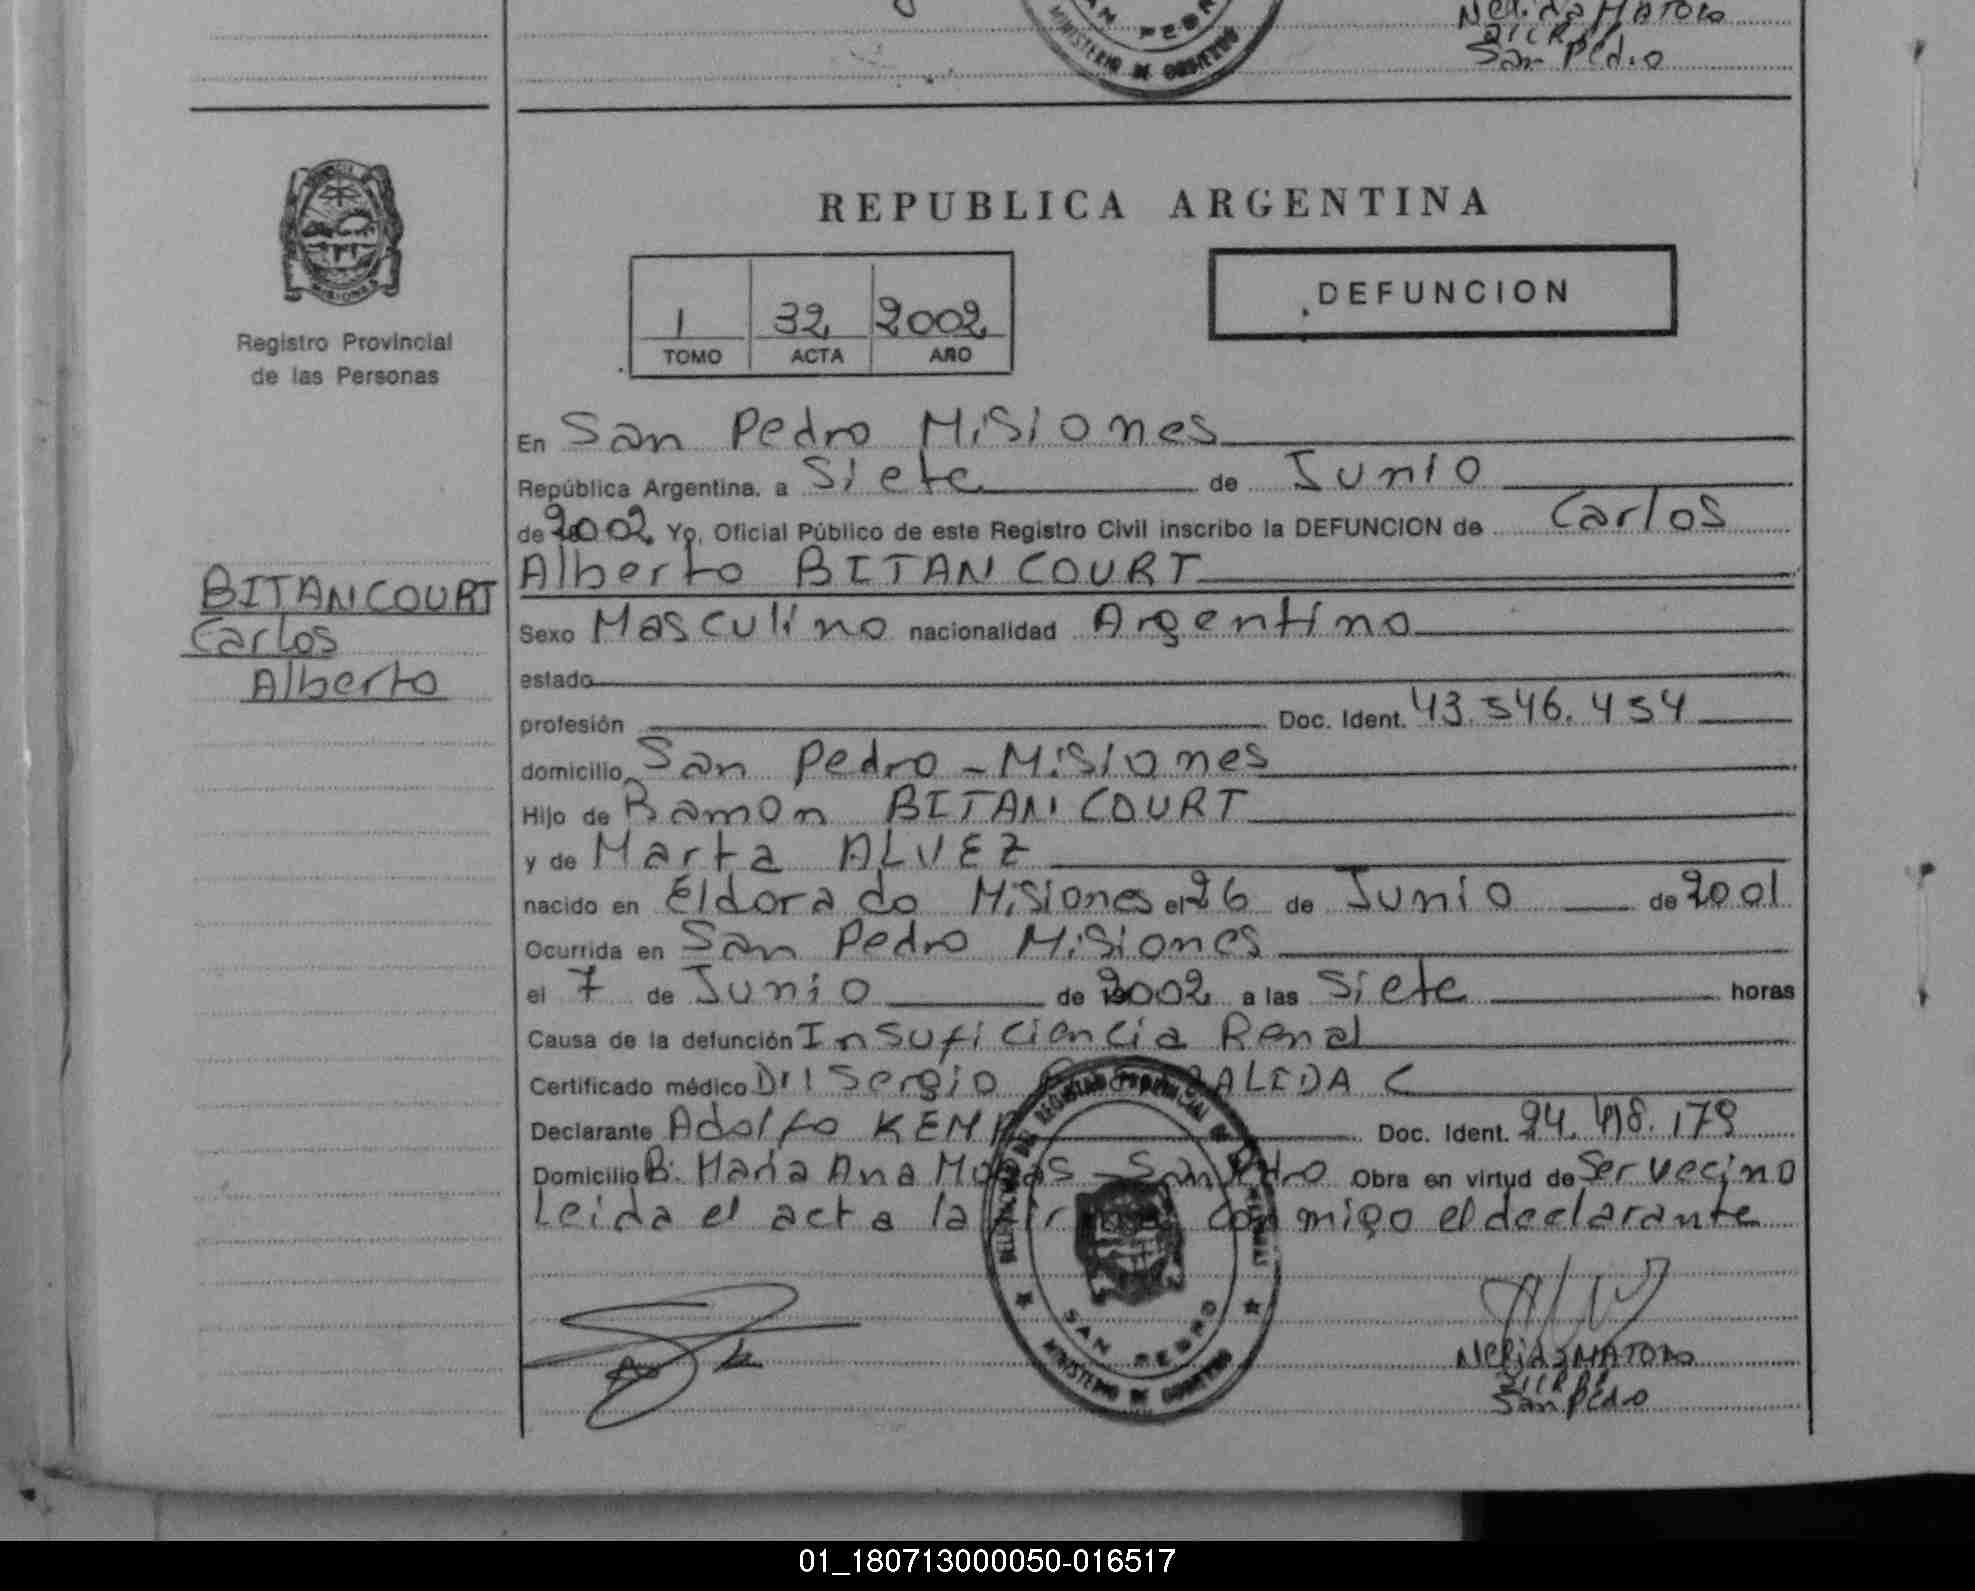 Nelida MATOSO
San Pedro
SAN PEDRO
MINISTERIO DE GOBIERNO
PROVINCIA DE
MISIONES
Registro Provincial
de las Personas
REPUBLICA ARGENTINA
1 32 2002
TOMO ACTA AÑO
DEFUNCION
En San Pedro Misiones
República Argentina, a Siete de Junio
de 2002 Yo, Oficial Público de este Registro Civil inscribo la DEFUNCION de Carlos
Alberto BITANCOURT
BITANCOURT
Carlos
Alberto
Sexo Masculino nacionalidad Argentino
estado
profesión Doc. Ident. 43.546.454
domicilio San Pedro - Misiones
Hijo de Ramon BITANCOURT
y de Marta ALVEZ
nacido en Eldorado Misiones el 26 de Junio de 2001
Ocurrida en San Pedro Misiones
el 7 de Junio de 2002 a las Siete horas
Causa de la defunción Insuficiencia Renal
Certificado médico Dr: Sergio C
Declarante Adolfo Doc. Ident. 24.418.179
Domicilio B: Maria Ana - San Pedro Obra en virtud de Ser vecino
Leida el acta la conmigo el declarante
SAN PEDRO
MINISTERIO DE GOBIERNO
Nelida MATOSO
San Pedro
01_180713000050-016517